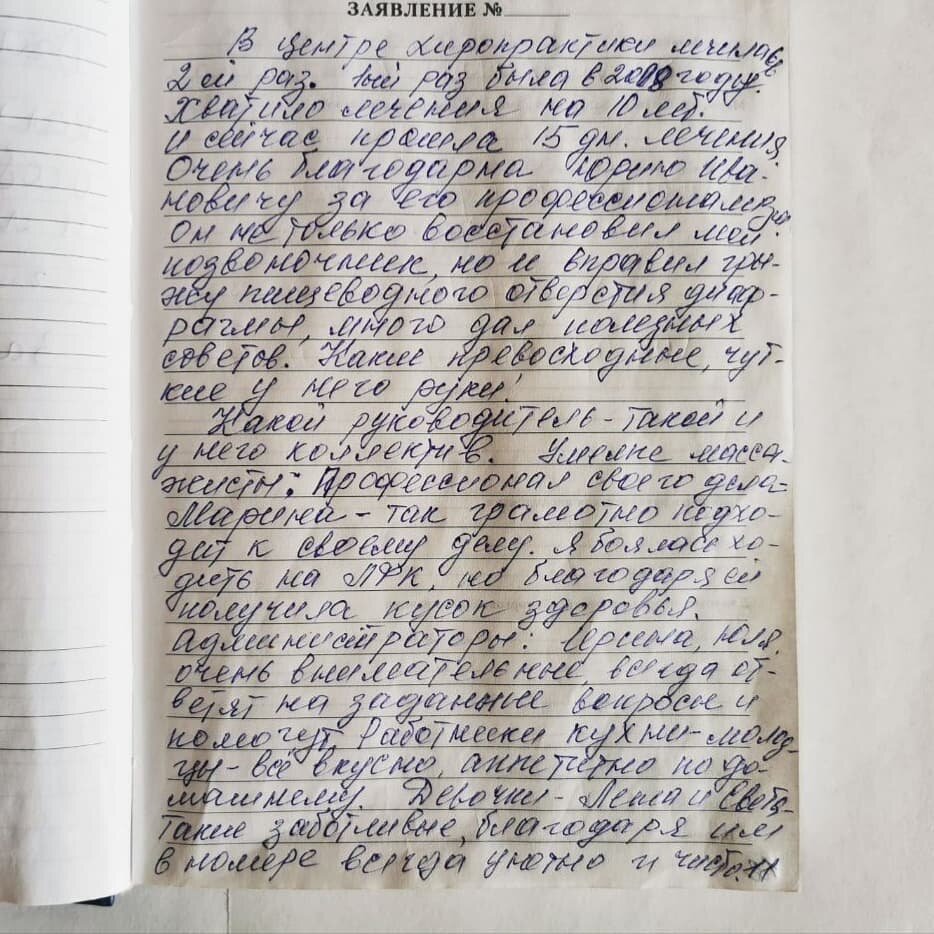 ЗАЯВЛЕНИЕ №
В центре хиропрактики лечилась
2ой раз. 1ый раз была в 2008 году.
Хватило лечения на 10 лет.
И сейчас прошла 15 дн. лечения.
Очень благодарна Юрию Ива-
новичу за его профессионализм.
Он не только восстановил мой
позвоночник, но и вправил гры-
жу пищеводного отверстия диаф-
рагмы, много дал полезных
советов. Какие превосходные, чут-
кие у него руки!
Какой руководитель - такой и
у него коллектив. Умелые масса-
жисты: Профессионал своего дела-
Марина - так грамотно подхо-
дит к своему делу. Я боялась хо-
дить на ЛФК, но благодаря ей
получила кусок здоровья.
Администраторы: Ирина, Юля,
очень внимательные, всегда от-
ветят на заданные вопросы и
помогут. Работники кухни - молод-
цы - всё вкусно, аппетитно по до-
машнему. Девочки - Лена и Света-
такие заботливые, благодаря им
в номере всегда уютно и чисто.